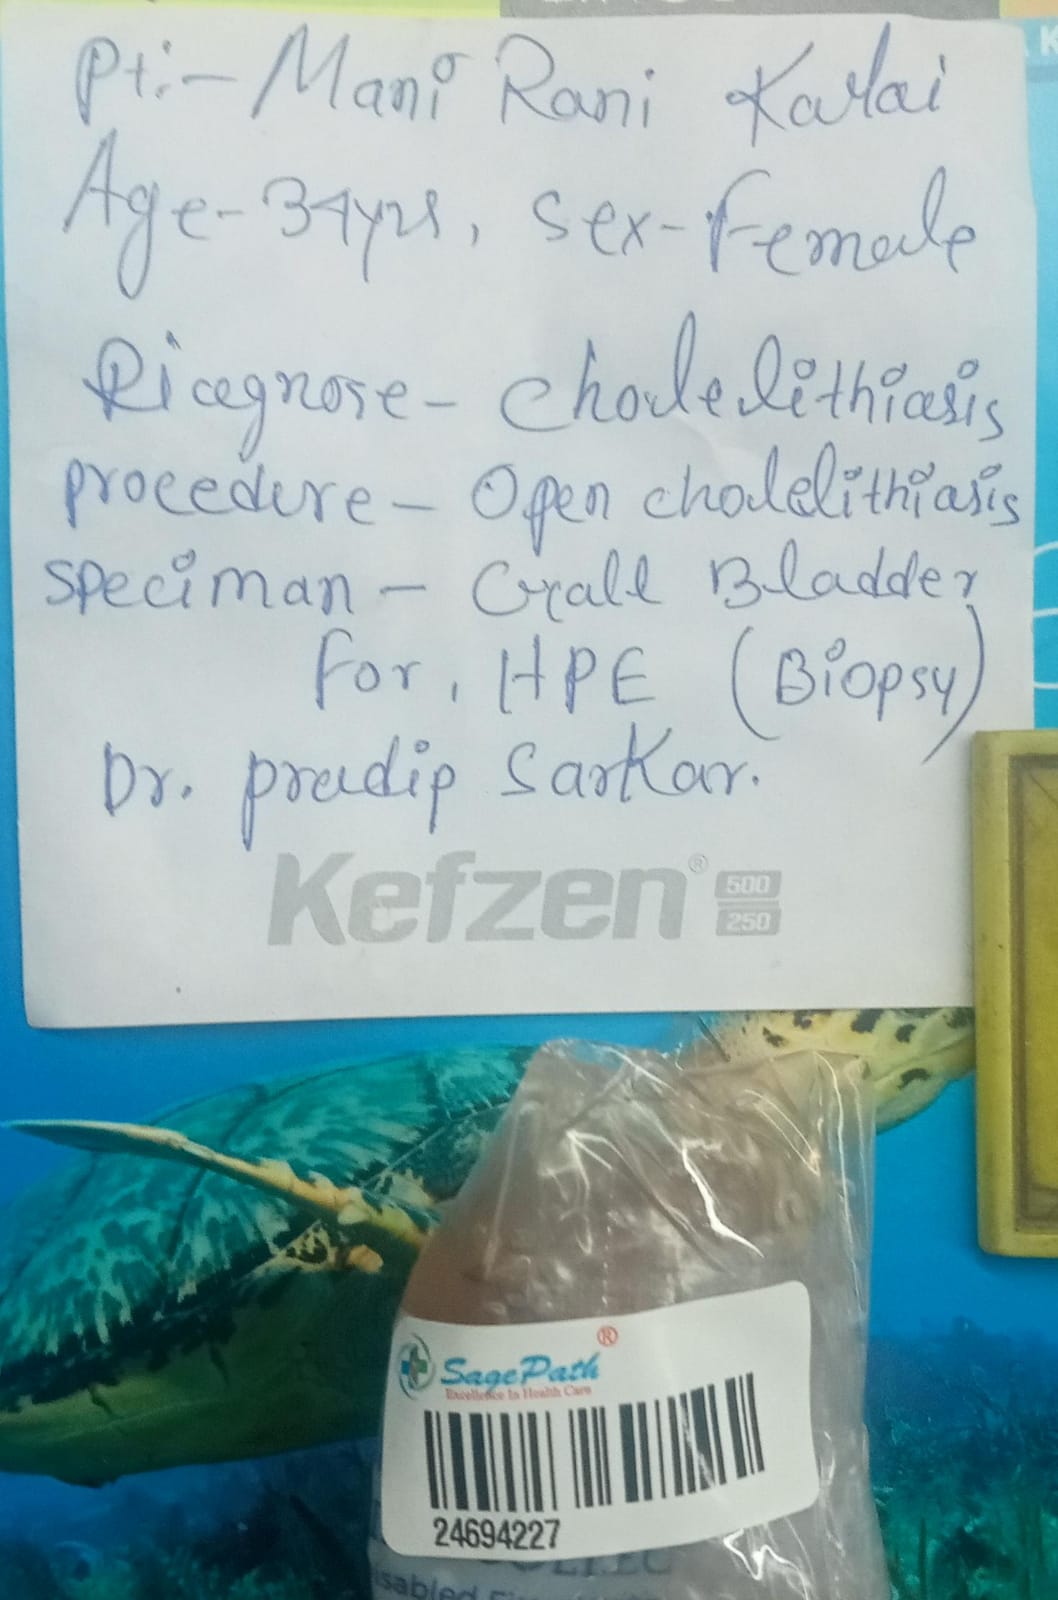 Pt:- Mani Rani Kalai
Age- 34yrs, Sex- Female
Diagnose- Cholelithiasis
procedure- Open cholelithiasis
speciman- Grall Bladder
For, HPE (Biopsy)
Dr. pradip Sarkar.
Kefzen® 500
250
SagePath®
Excellence In Health Care
24694227